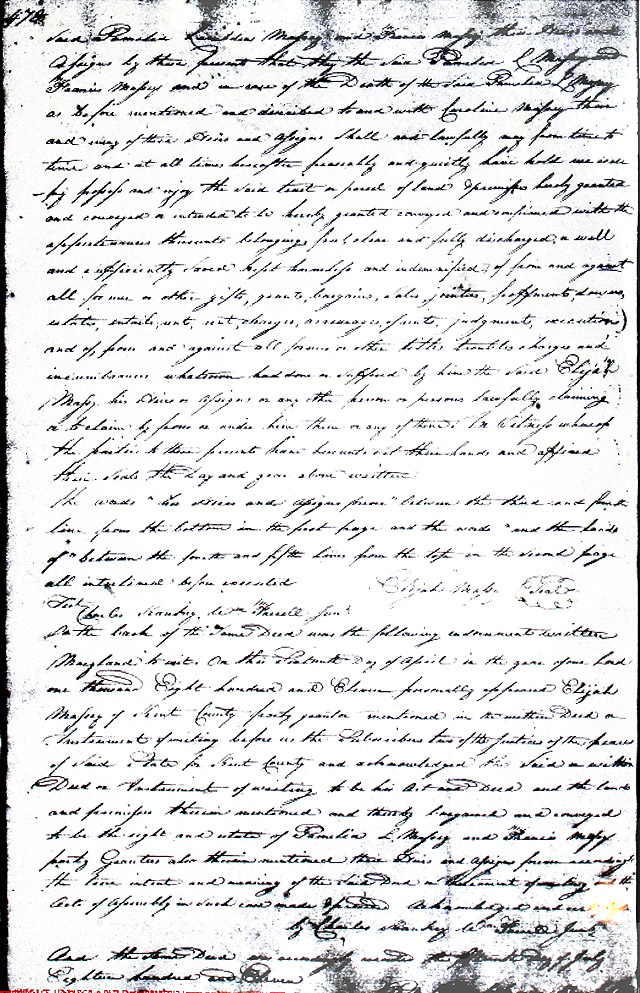 474
Said Pamelia Massey and Francis Massey their Heirs and
Assigns by these presents that they the Said Pamelia L Massey and
Francis Massey and in case of the Death of the Said Pamelia L Massey
as before mentioned and described to and with Caroline Massey them
and every of their Heirs and Assigns Shall and lawfully may from time to
time and at all times hereafter peaceably and quietly have hold use occu
-py possess and enjoy the Said tract or parcel of land & premises hereby granted
and conveyed or intended to be hereby granted conveyed and confirmed with the
appurtenances thereunto belonging free clear and fully discharged, or well
and sufficiently Saved kept harmless and indemnified, of from and against
all former or other gifts, grants, bargains, Sales, jointures, feoffments dowers,
estates, entails, rents, rent charges, arrearages of rents, judgments, executions
and of, from and against all former or other titles troubles charges and
incumbrances whatsoever had done or Suffered by him the Said Elijah
Massey his Heirs or Assigns or any other person or persons lawfully claiming
or to claim by from or under him them or any of them: In Witness whereof
the parties to these presents have hereunto set their hands and affixed
their Seals the Day and year above written
The words " Heirs and Assigns forever" between the third and fourth
line from the bottom in the first page and the words "and the
of" between the fourth and fifth lines from the top in the second page
all interlined before executed Elijah Massey Seal
Test
Charles Wm Junr
On the back of the Same Deed was the following endorsment written
Maryland to wit: On this Day of April in the year of our Lord
one thousand Eight hundred and Eleven personally appeared Elijah
Massey of Kent County party grantor mentioned in the within Deed or
Instrument of writing before us the Subscribers two of the Justices of the peace
of Said State for Kent County and acknowledged the Said within
Deed or Instrument of writing to be his Act and Deed and the lands
and premises therein mentioned and thereby bargained and conveyed
to be the right and estate of Pamelia L Massey and Francis Massey
party Grantees also therein mentioned their Heirs and Assigns forever according to
the true intent and meaning of the Said Deed or Instrument of writing and the
Acts of Assembly in Such case made & provided Acknowledged
by Charles Wm Junr
And the Same Deed was recorded the Day of July
Eighteen hundred and Eleven